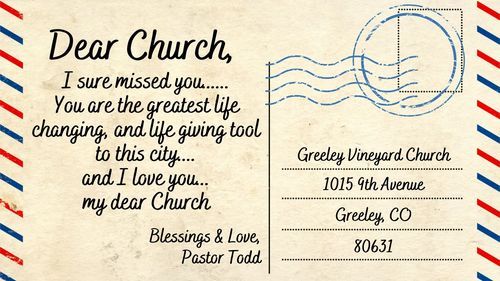 Dear Church,
I sure missed you......
You are the greatest life
changing, and life giving tool
to this city....
and I love you...
my dear Church
Blessings & Love,
Pastor Todd
Greeley Vineyard Church
1015 9th Avenue
Greeley, CO
80631